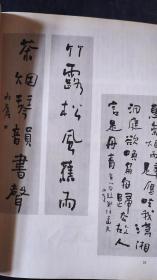 惠崇烟雨蘆雁坐我瀟湘
洞庭欲喚扁舟歸去故人
言是丹青
竹露松風蕉雨
茶烟琴韻書聲